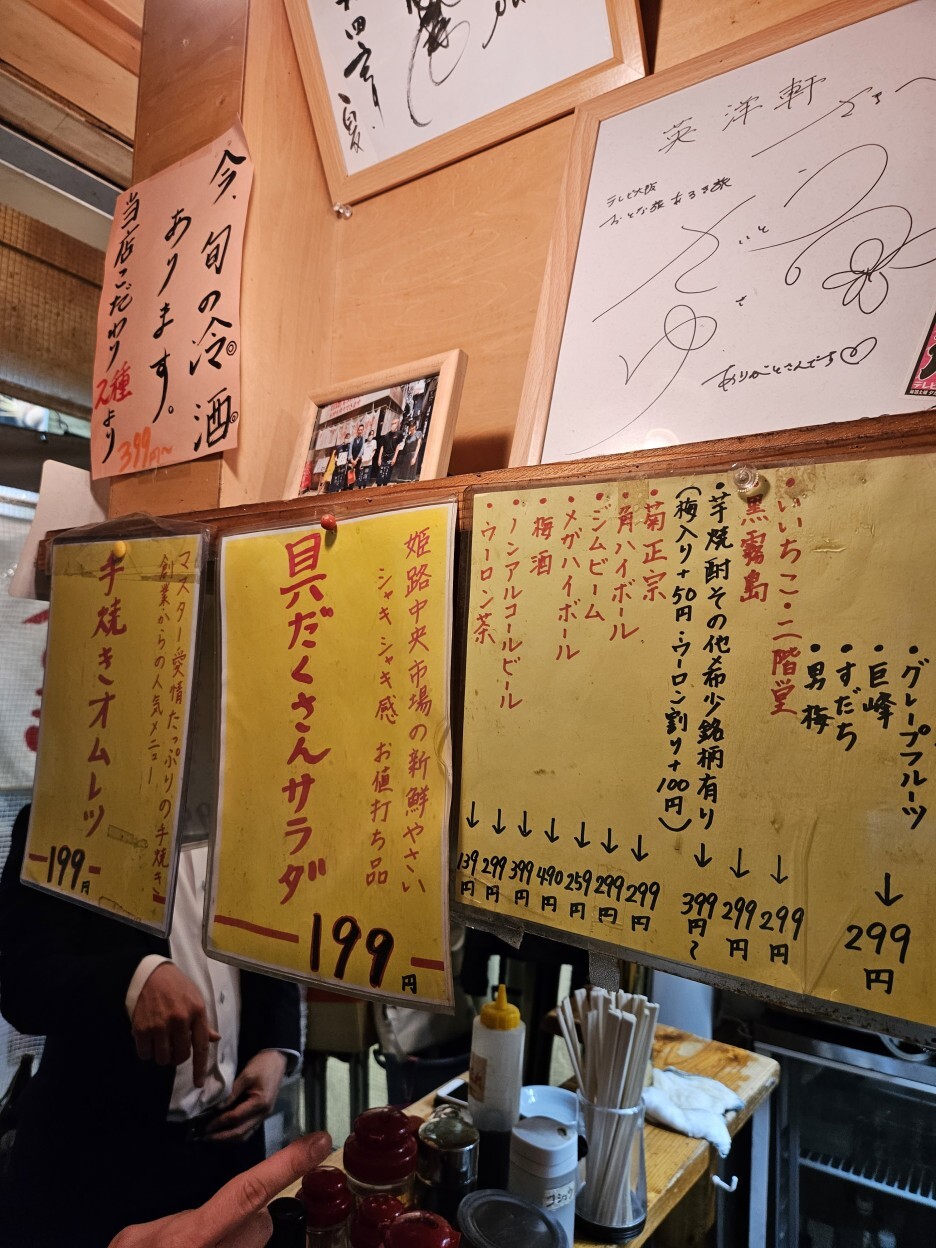 今、旬の冷酒
あります。
当店こだわり2種より
399円～
英洋軒
テレビ大阪
おとな旅あるき旅
姫路中央市場の新鮮やさい
シャキシャキ感 お値打ち品
具だくさんサラダ
199円
マスター愛情たっぷりの手焼き
創業からの人気メニュー
手焼きオムレツ
199円
・グレープフルーツ
・巨峰
・すだち
・男梅
↓
299円
・いいちこ・二階堂
↓
299円
・黒霧島
↓
299円
・芋焼酎その他希少銘柄有り
(梅入り+50円・ウーロン割り+100円)
↓
399円～
・菊正宗
↓
299円
・角ハイボール
↓
299円
・ジムビーム
↓
259円
・メガハイボール
↓
490円
・梅酒
↓
399円
・ノンアルコールビール
↓
299円
・ウーロン茶
↓
139円
コショウ